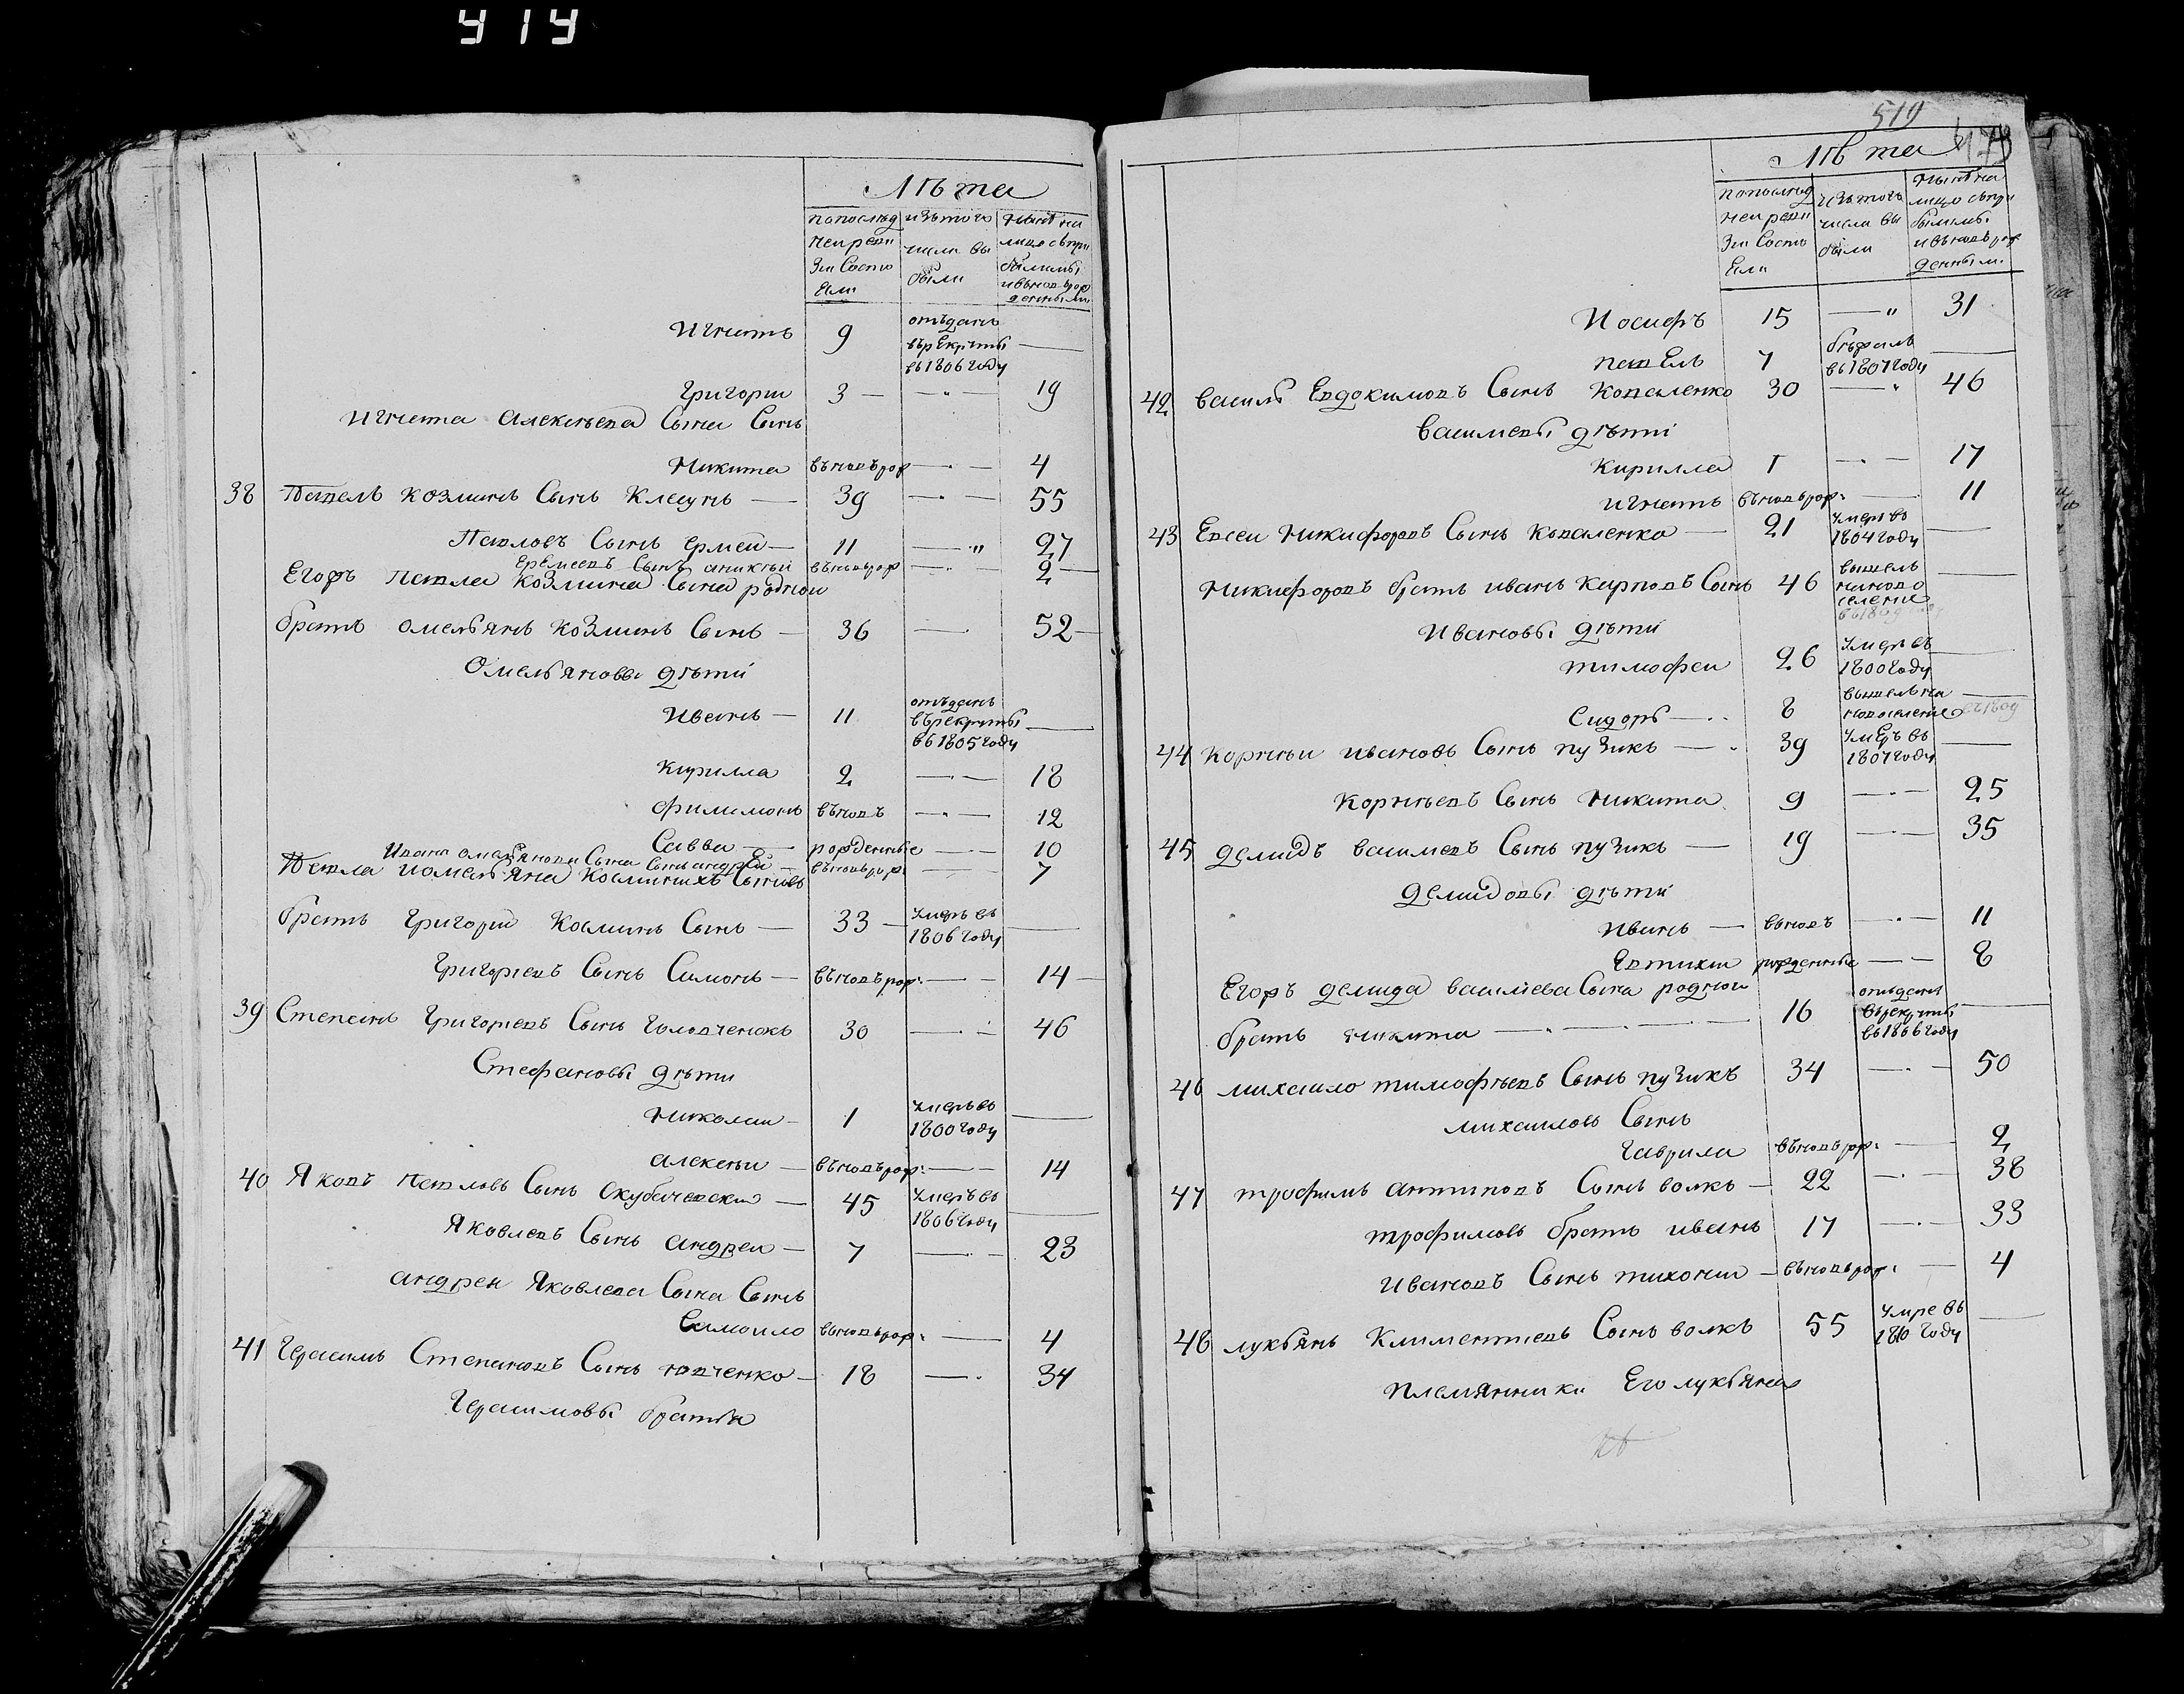 419
Лѣта
попослѣд ней ревизии Состоя ели
изъ того числа вы были
нынѣ на лицо съпри былыми ивъновьрож денными
Игнатъ 9 отъданъ въ рекруты въ 1806 году —
Григории 3 — — 19
Игната алексѣева Сына Сынъ
Никита въновьрож — 4
38 Павелъ козминъ Сынъ Клесунъ — 39 — 55
Павловъ Сынъ ермей — 11 — " 27
Еремеевъ Сынъ аникѣй въновьрож — 2
Егожъ павла козмина Сына родной
братъ омельянъ козминъ Сынъ — 36 — 52
Омельяновы дѣти
Иванъ — 11 отъданъ въ рекруты въ 1805 году —
Кирилла 2 — 18
филимонъ въновъ — 12
Савва — рожденные — 10
Ивана омельянова Сына Сынъ андрѣй — въновьрож: — 7
Павла иомельяна косминыхъ Сыновъ
братъ Григорий Косминъ Сынъ — 33 — умеръ въ 1806 году —
Григориевъ Сынъ Симонъ — въновьрож: — 14
39 Степанъ Григориевъ Сынъ Головченокъ 30 — 46
Стефановы дѣти
николаи — 1 умеръ въ 1800 году —
алексѣи — въновьрож: — 14
40 Яковъ павловъ Сынъ Скубачевски — 45 умеръ въ 1806 году —
Яковлевъ Сынъ андреи — 7 — 23
андрея Яковлева Сына Сынъ
Самоило въновьрож: — 4
41 Герасимъ Степановъ Сынъ товченко — 18 — 34
Герасимовы братья
519
Лѣта
попослѣд ней ревизии Состоя ели
изъ того числа вы были
нынѣ на лицо съпри былыми ивъновьрож денными
Иосифъ 15 — " 31
павелъ 7 бѣжалъ въ 1807 году —
42 василий Евдокимовъ Сынъ Коваленко 30 — 46
васильевы дѣти
Кирилла 1 — 17
игнатъ въновьрож: — 11
43 Евсеи никифоровъ Сынъ Коваленко — 21 умеръ въ 1804 году —
Никифоровъ братъ иванъ карповъ Сынъ 46 вышелъ наново селение —
Ивановы дѣти
тимофеи 26 умеръ въ 1800 году —
Сидоръ — 8 вышелъ на новоселение —
44 корнѣи ивановъ Сынъ пузикъ — 39 умеръ въ 1807 году —
корнѣевъ Сынъ никита 9 — 25
45 демидъ васильевъ Сынъ пузикъ — 19 — 35
демидовы дѣти
иванъ — въновъ — 11
Евтихи рожденные — 8
Егожъ демида васильева Сына родной
братъ никита — 16 отъданъ въ рекруты въ 1806 году —
46 михаило тимофѣевъ Сынъ пузикъ 34 — 50
михаиловъ Сынъ
гаврила въновьрож: — 2
47 трофимъ антиповъ Сынъ волкъ — 22 — 38
трофимовъ братъ иванъ 17 — 33
Ивановъ Сынъ тихонъ — въновьрож: — 4
48 лукьянъ Климентиевъ Сынъ волкъ 55 умре въ 1810 году —
племянники Его лукьяна